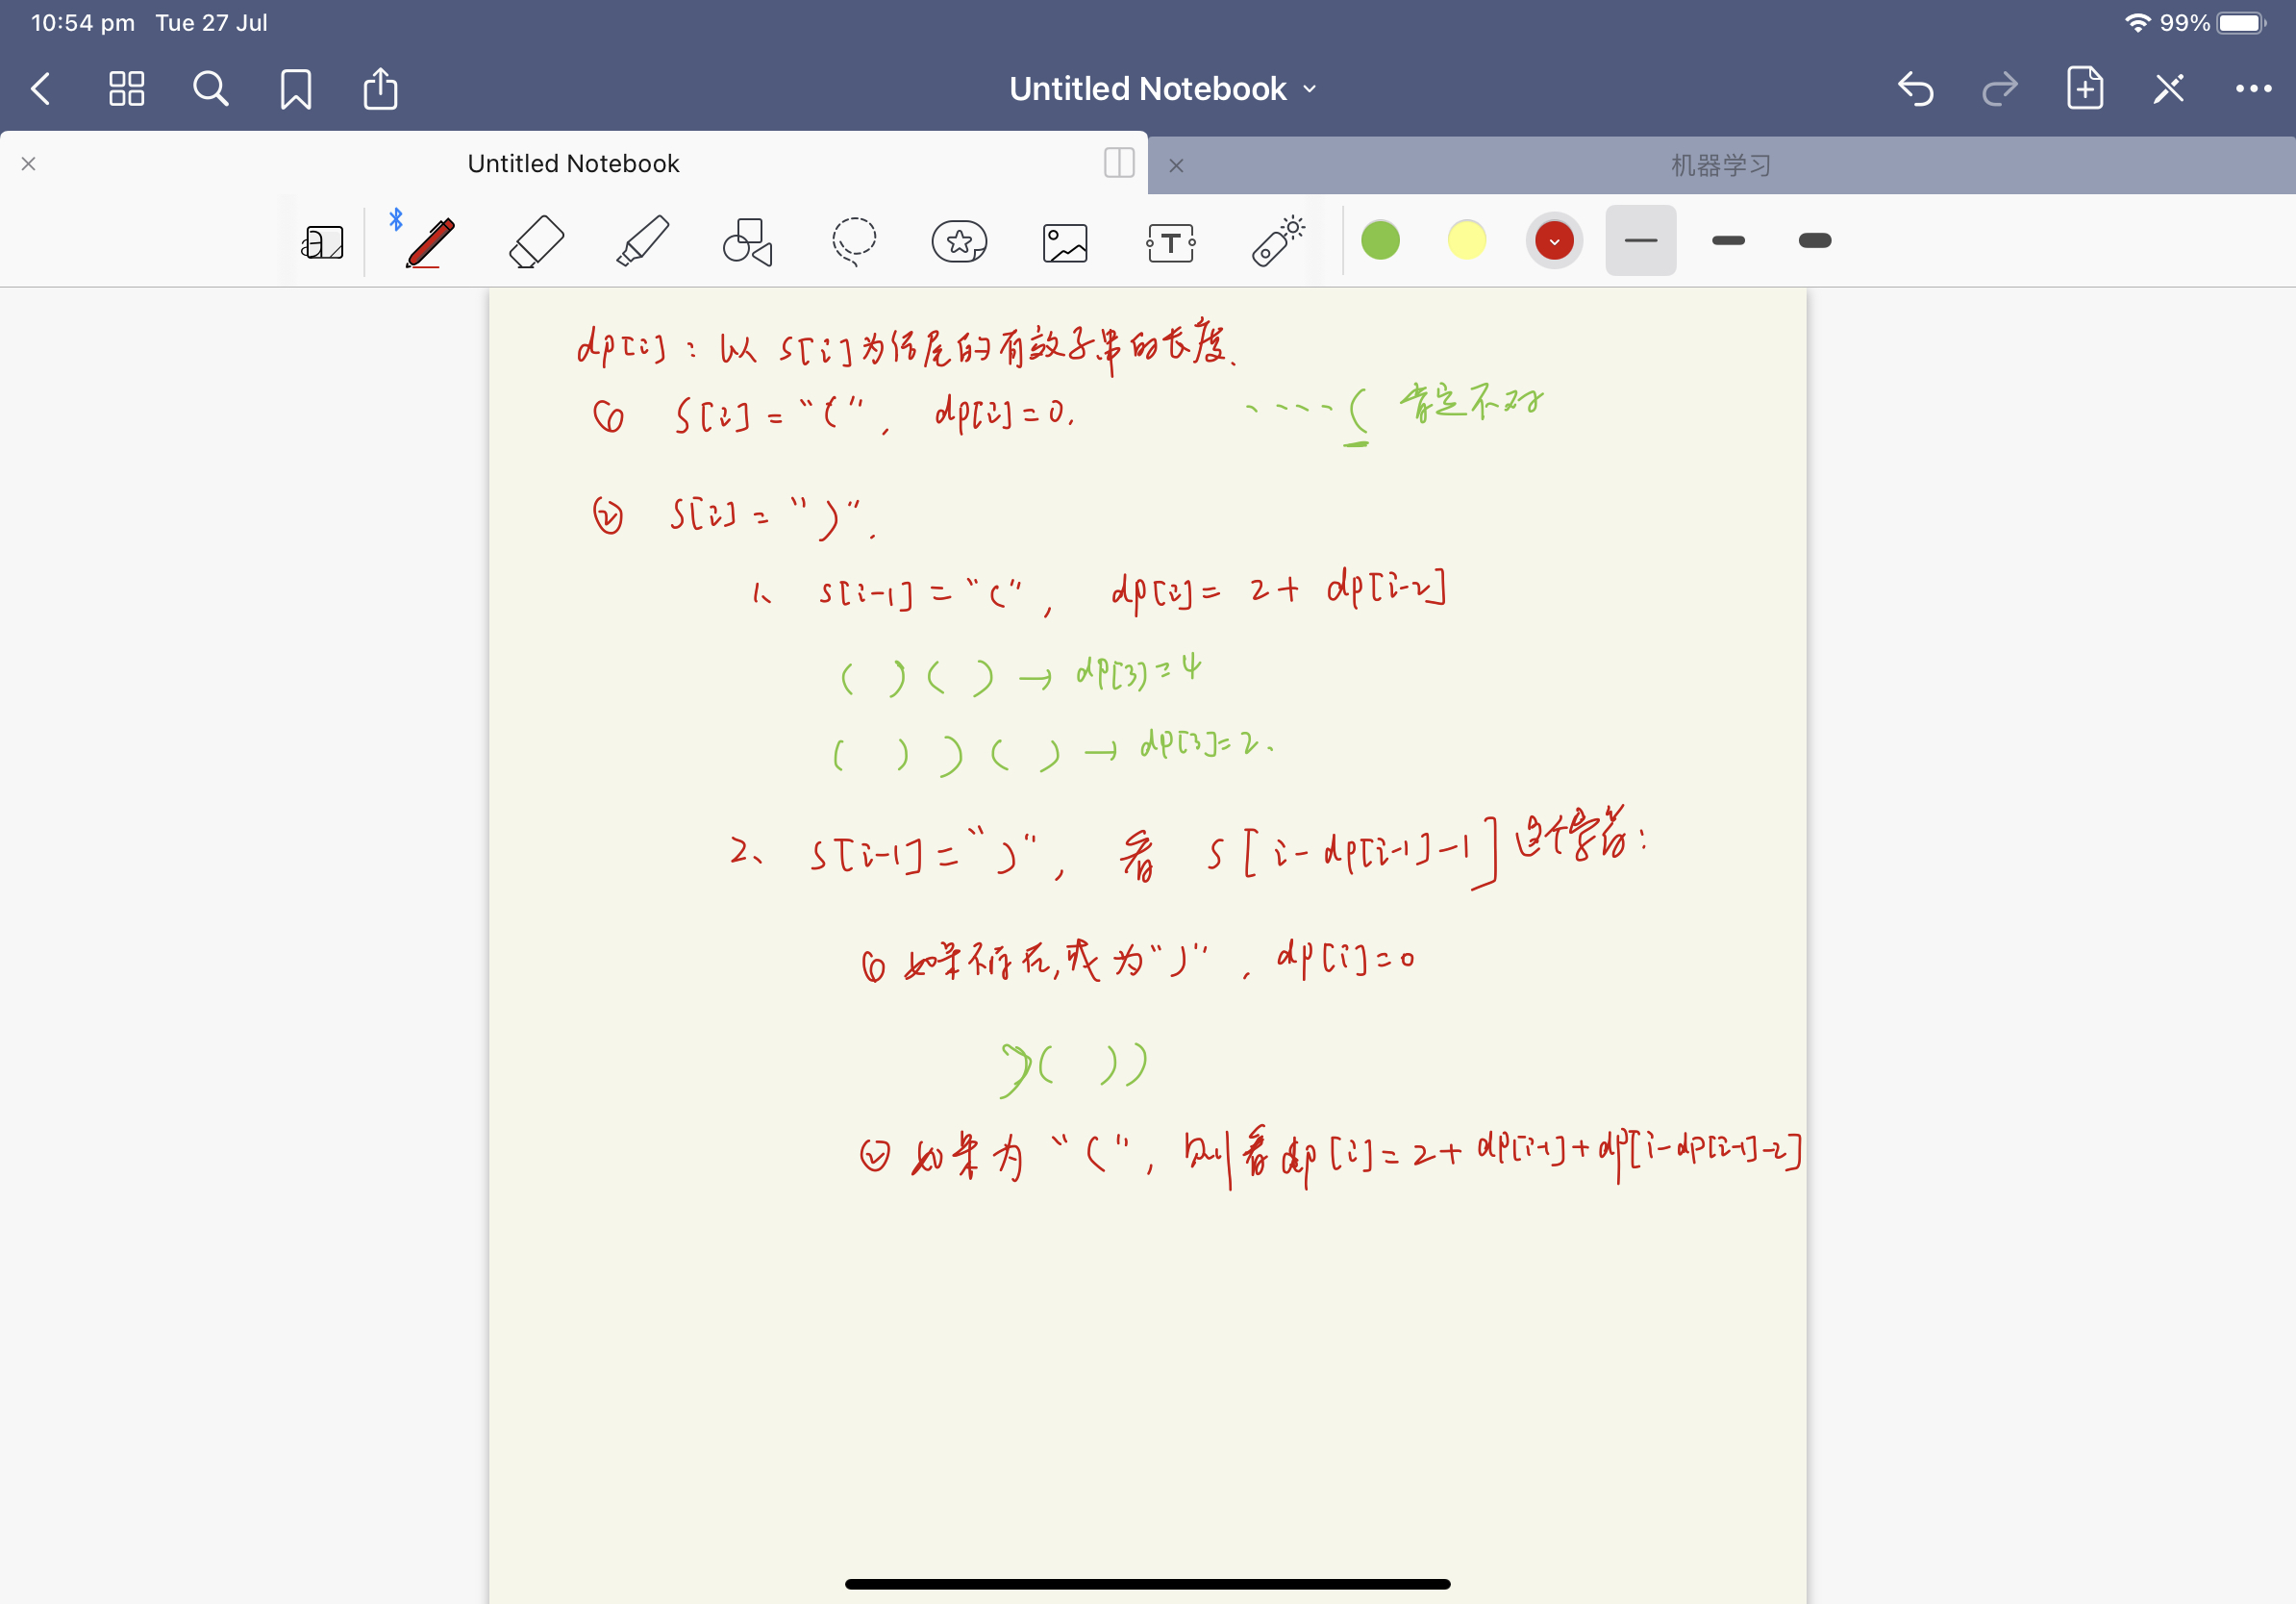 10:54 pm Tue 27 Jul
99%
Untitled Notebook
Untitled Notebook
机器学习
T
dp[i]：以 S[i]为结尾的有效子串的长度.
① S[i] = "(", dp[i]=0.
....( 肯定不对
② S[i] = ")".
1、 S[i-1] = "(", dp[i] = 2 + dp[i-2]
( ) ( ) → dp[3]=4
( ) ) ( ) → dp[3]=2.
2、 S[i-1] = ")", 看 S[i-dp[i-1]-1]这个字符：
① 如果不存在,或为")", dp[i]=0
)( ))
② 如果为"(", 则看dp[i]=2+dp[i-1]+dp[i-dp[i-1]-2]